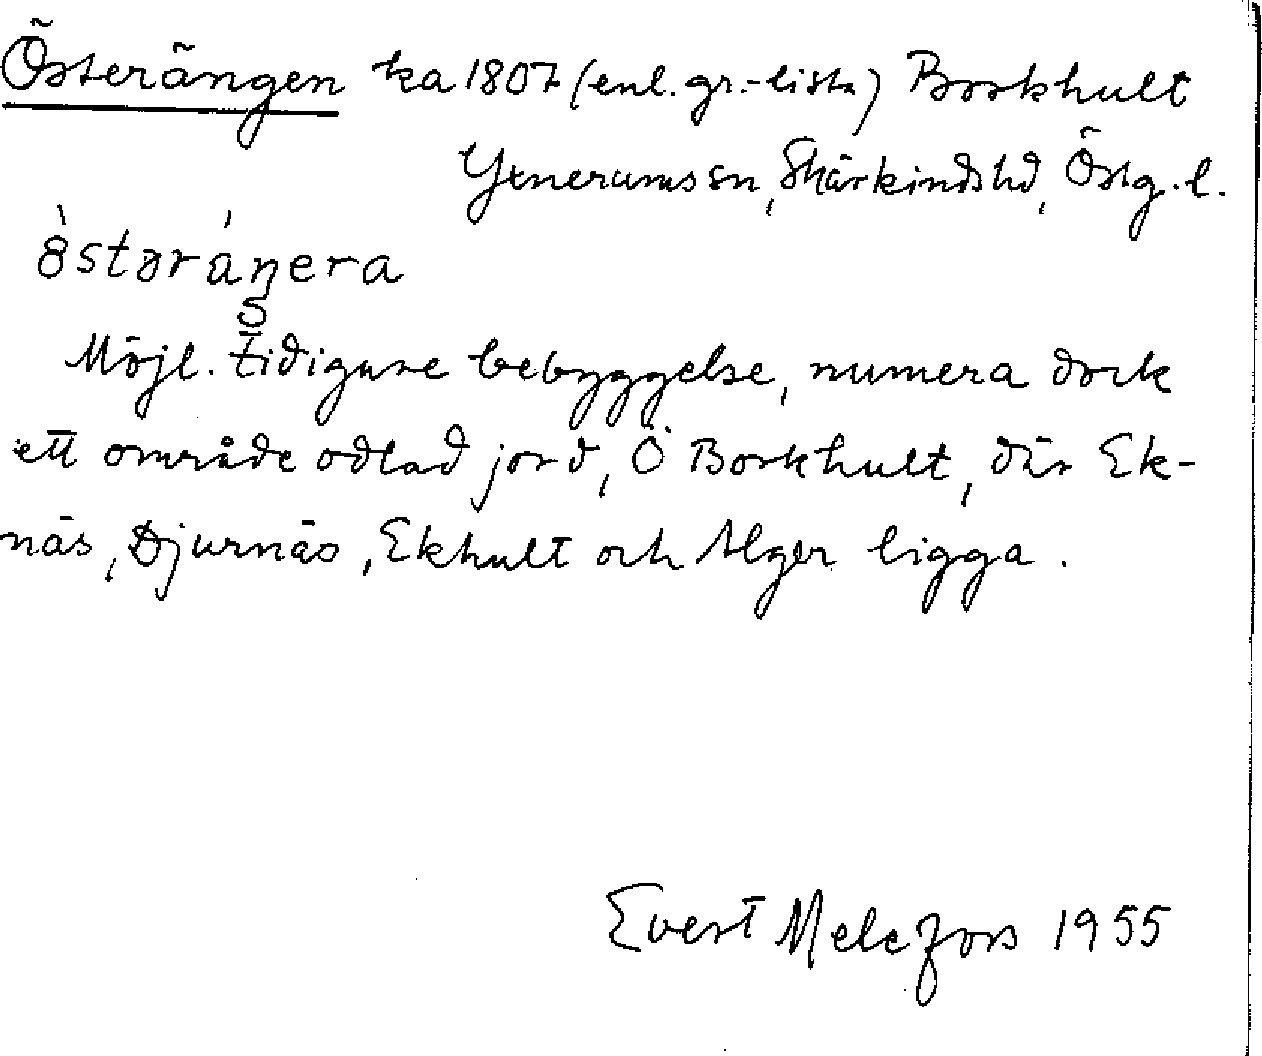 Österängen ka 1807 (enl. gr.-lista) Borkhult
Yxnerums sn, Skärkinds hd, Östg. l.
Möjl. tidigare bebyggelse, numera dock
ett område odlad jord, Ö Borkhult, där Ek-
näs, Djurnäs, Ekhult och Alger ligga.
Evert Melefors 1955